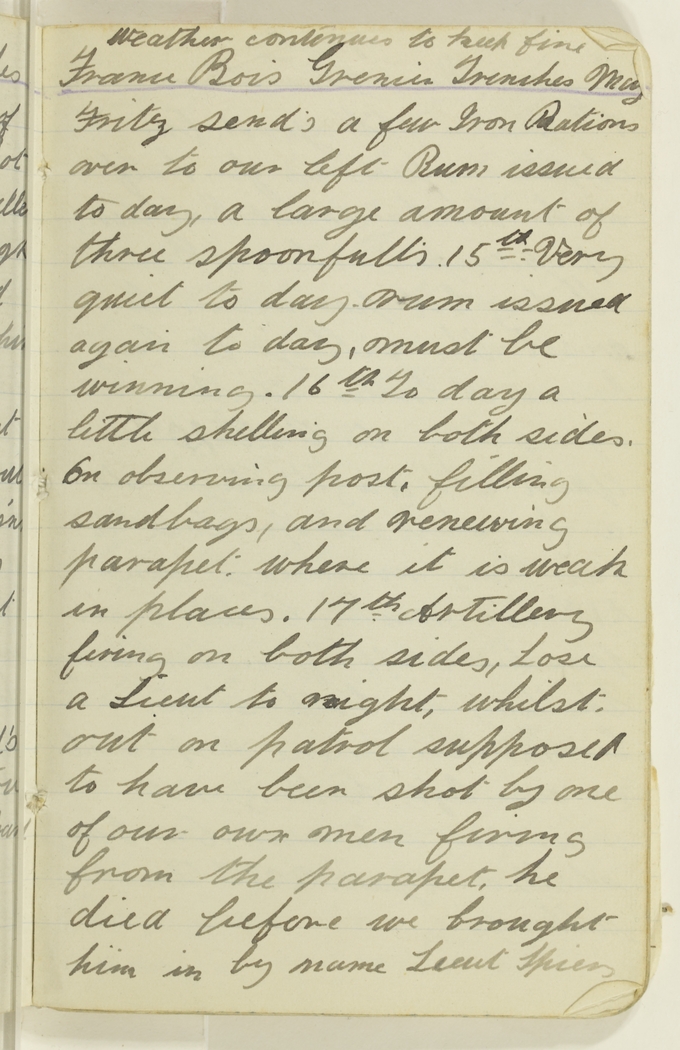 weather continues to keep fine
France Bois Grenier Trenches May
Fritz send's a few Iron Rations
over to our left Rum issued
to day, a large amount of
three spoonfulls. 15th Very
quiet to day. rum issued
again to day, must be
winning. 16th To day a
little shelling on both sides.
On observing post. filling
sandbags, and renewing
parapet. where it is weak
in places. 17th Artillery
firing on both sides, Lose
a Lieut to night, whilst.
out on patrol supposed
to have been shot by one
of our own men firing
from the parapet. he
died before we brought
him in by name Lieut